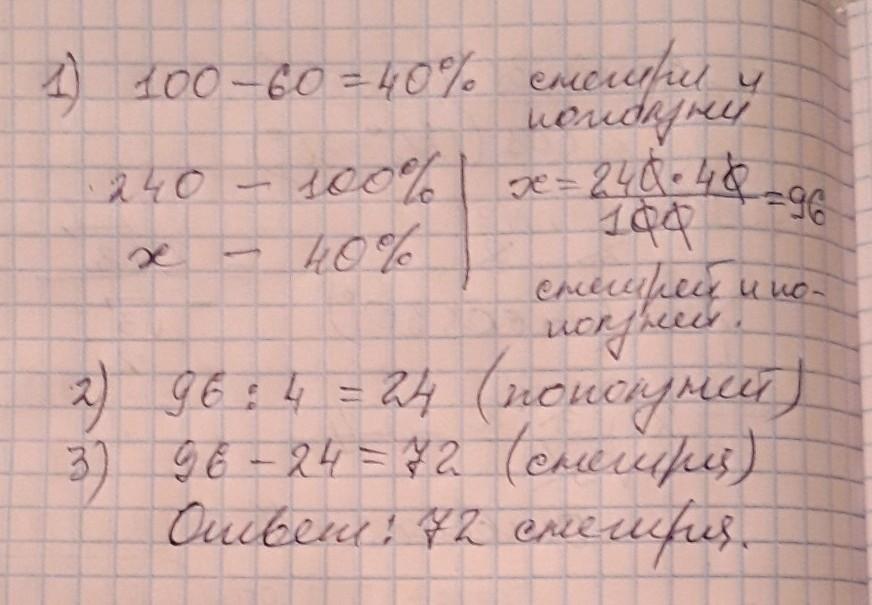 1) 100 - 60 = 40% снегири и
попопузни
240 - 100% | x = 240·40/100 = 96
x - 40%
снегирей и по-
попузней.
2) 96 : 4 = 24 (попопузней)
3) 96 - 24 = 72 (снегиря)
Ответ: 72 снегиря.